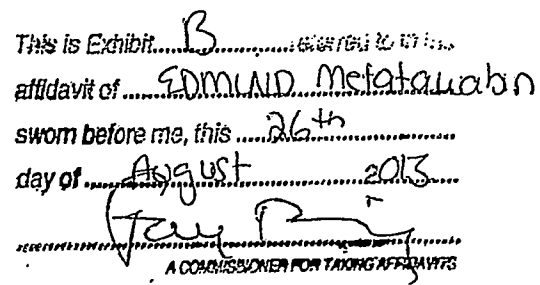 This is Exhibit......B..............referred to in the
affidavit of ......EDMUND Metatawabin
sworn before me, this ......26th..............
day of ......August..............2013......
A COMMISSIONER FOR TAKING AFFIDAVITS